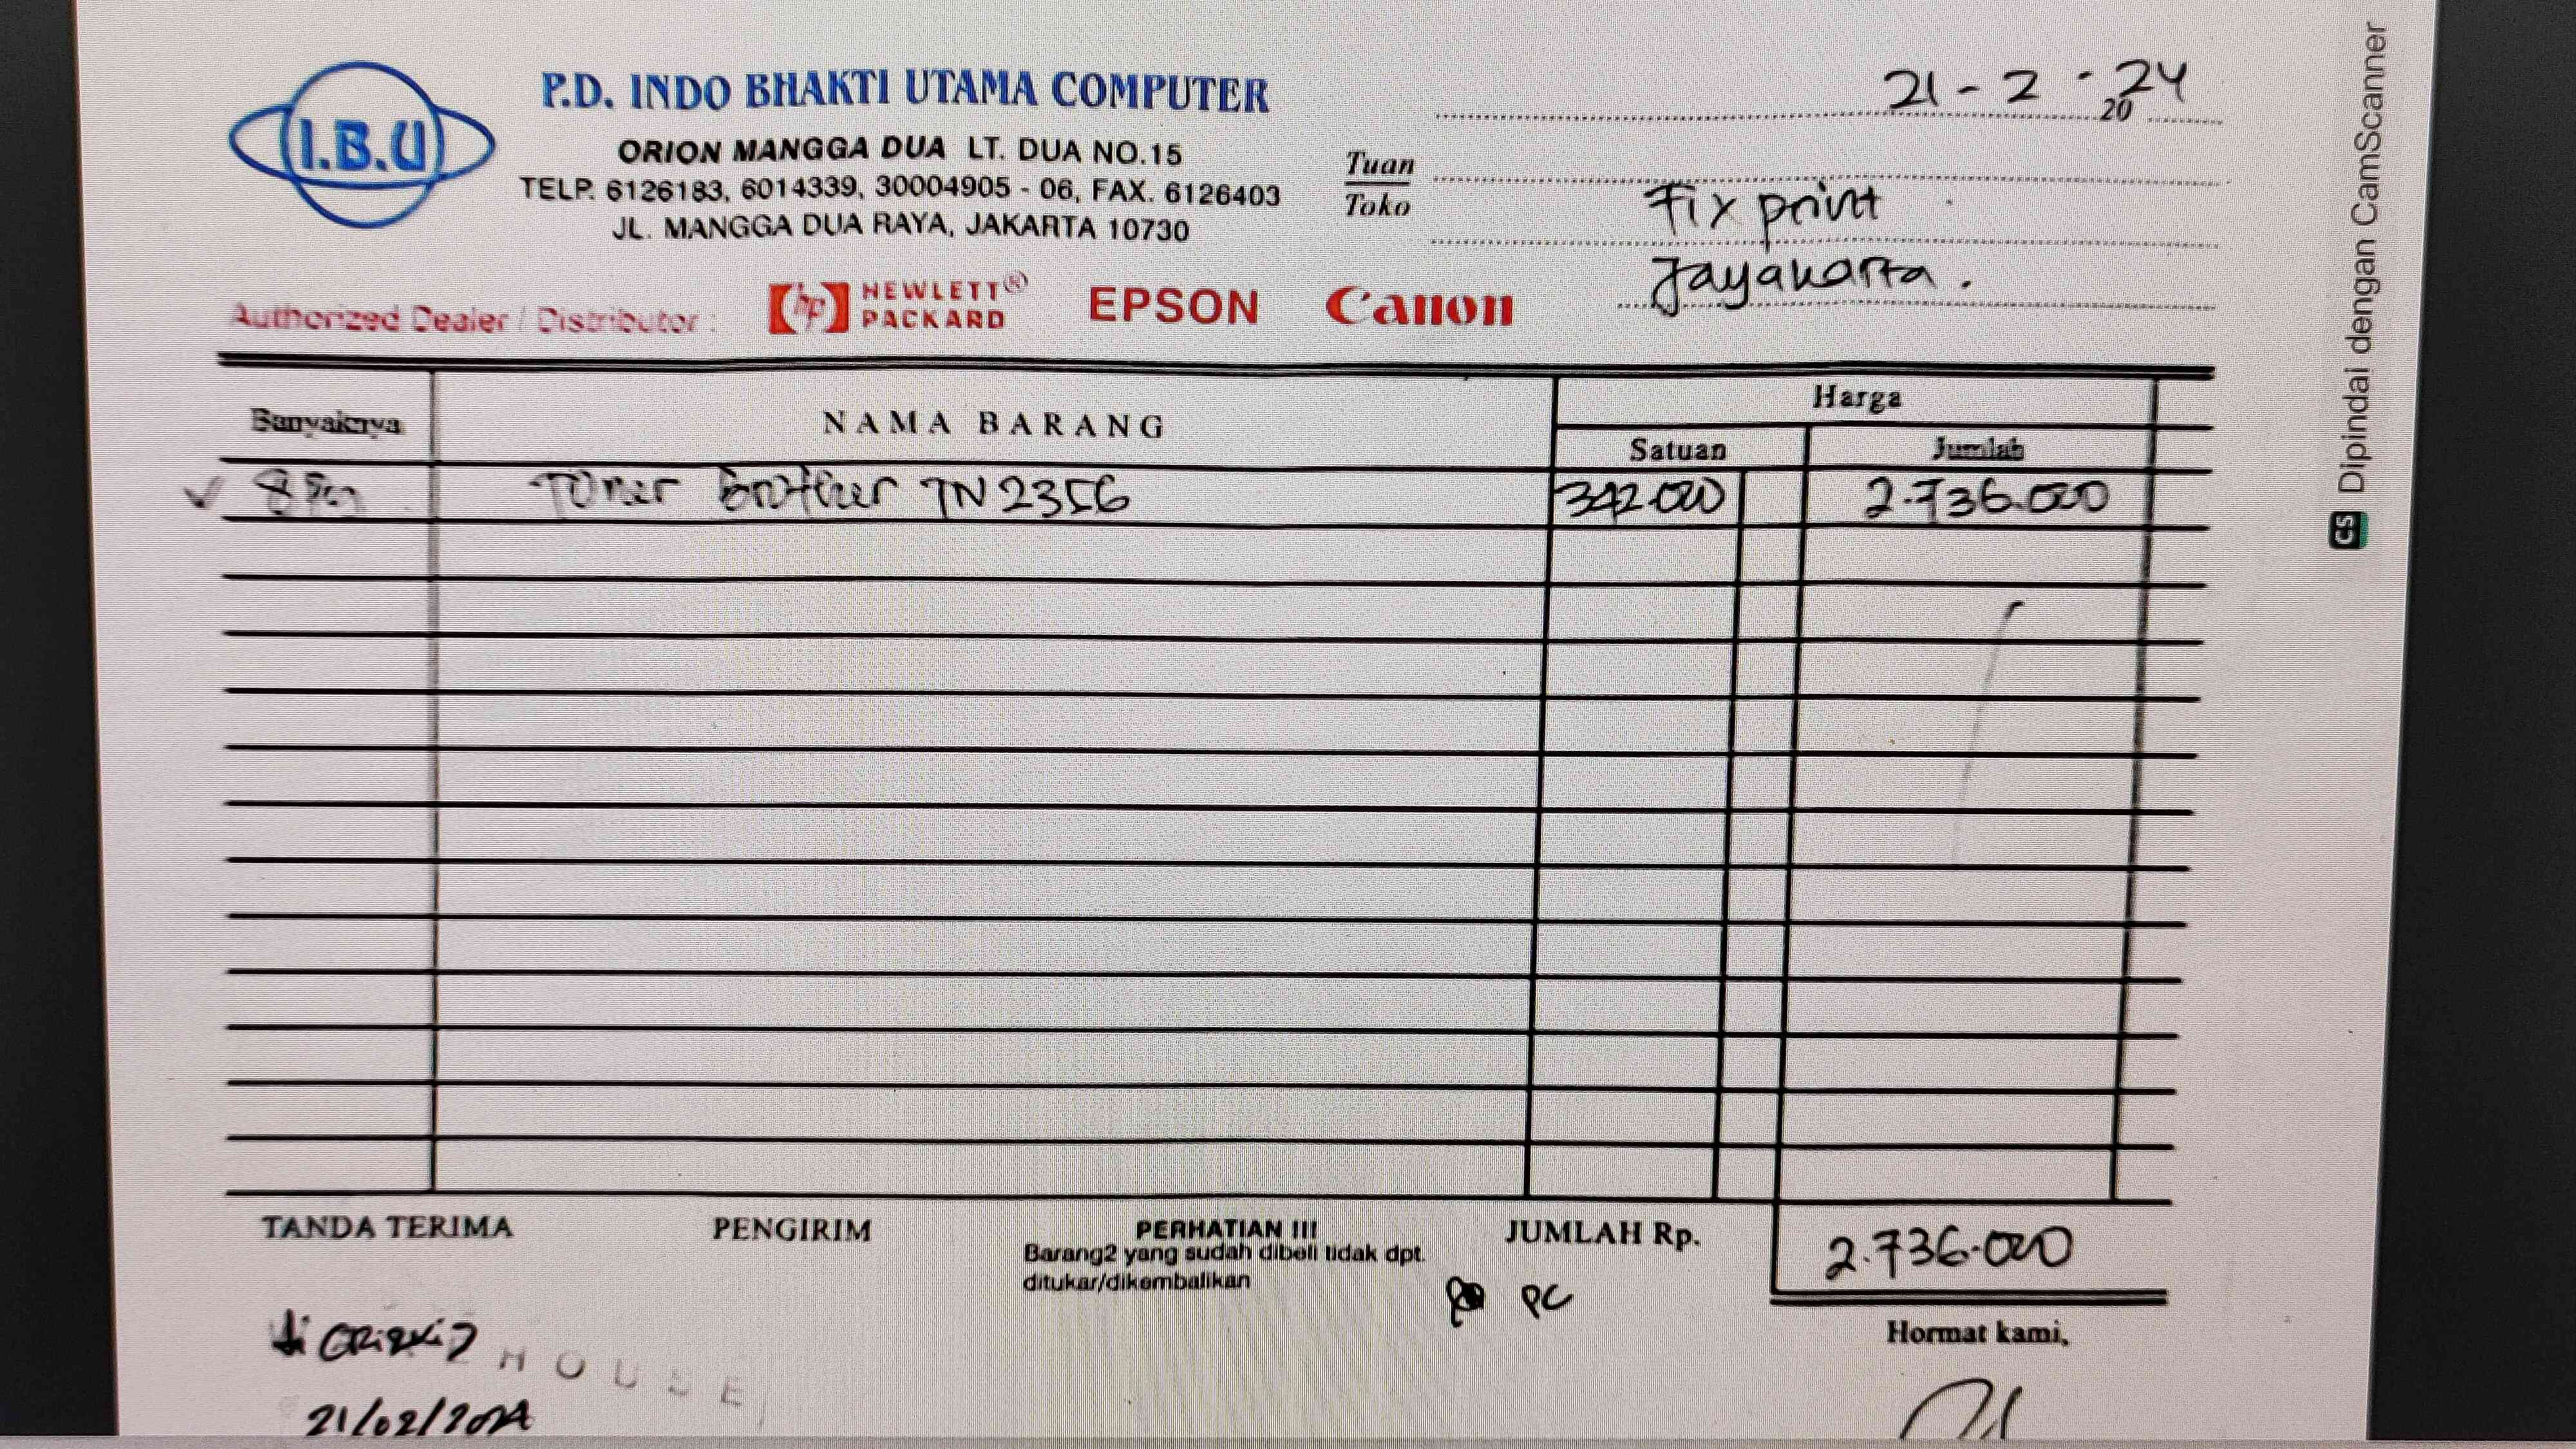 I.B.U
P.D. INDO BHAKTI UTAMA COMPUTER
ORION MANGGA DUA LT. DUA NO.15
TELP. 6126183, 6014339, 30004905 - 06, FAX. 6126403
JL. MANGGA DUA RAYA, JAKARTA 10730
Authorized Dealer / Distributor :
hp HEWLETT® PACKARD
EPSON
Canon
21 - 2 - 2024
Tuan
Toko
Fix print
Jayakarta.
Banyaknya
NAMA BARANG
Harga
Satuan
Jumlah
8 Toner Brother TN 2356 342.000 2.736.000
TANDA TERIMA
PENGIRIM
PERHATIAN !!!
Barang2 yang sudah dibeli tidak dpt.
ditukar/dikembalikan
JUMLAH Rp.
2.736.000
PC
Hormat kami,
HOUSE
21/02/2024
CS Dipindai dengan CamScanner